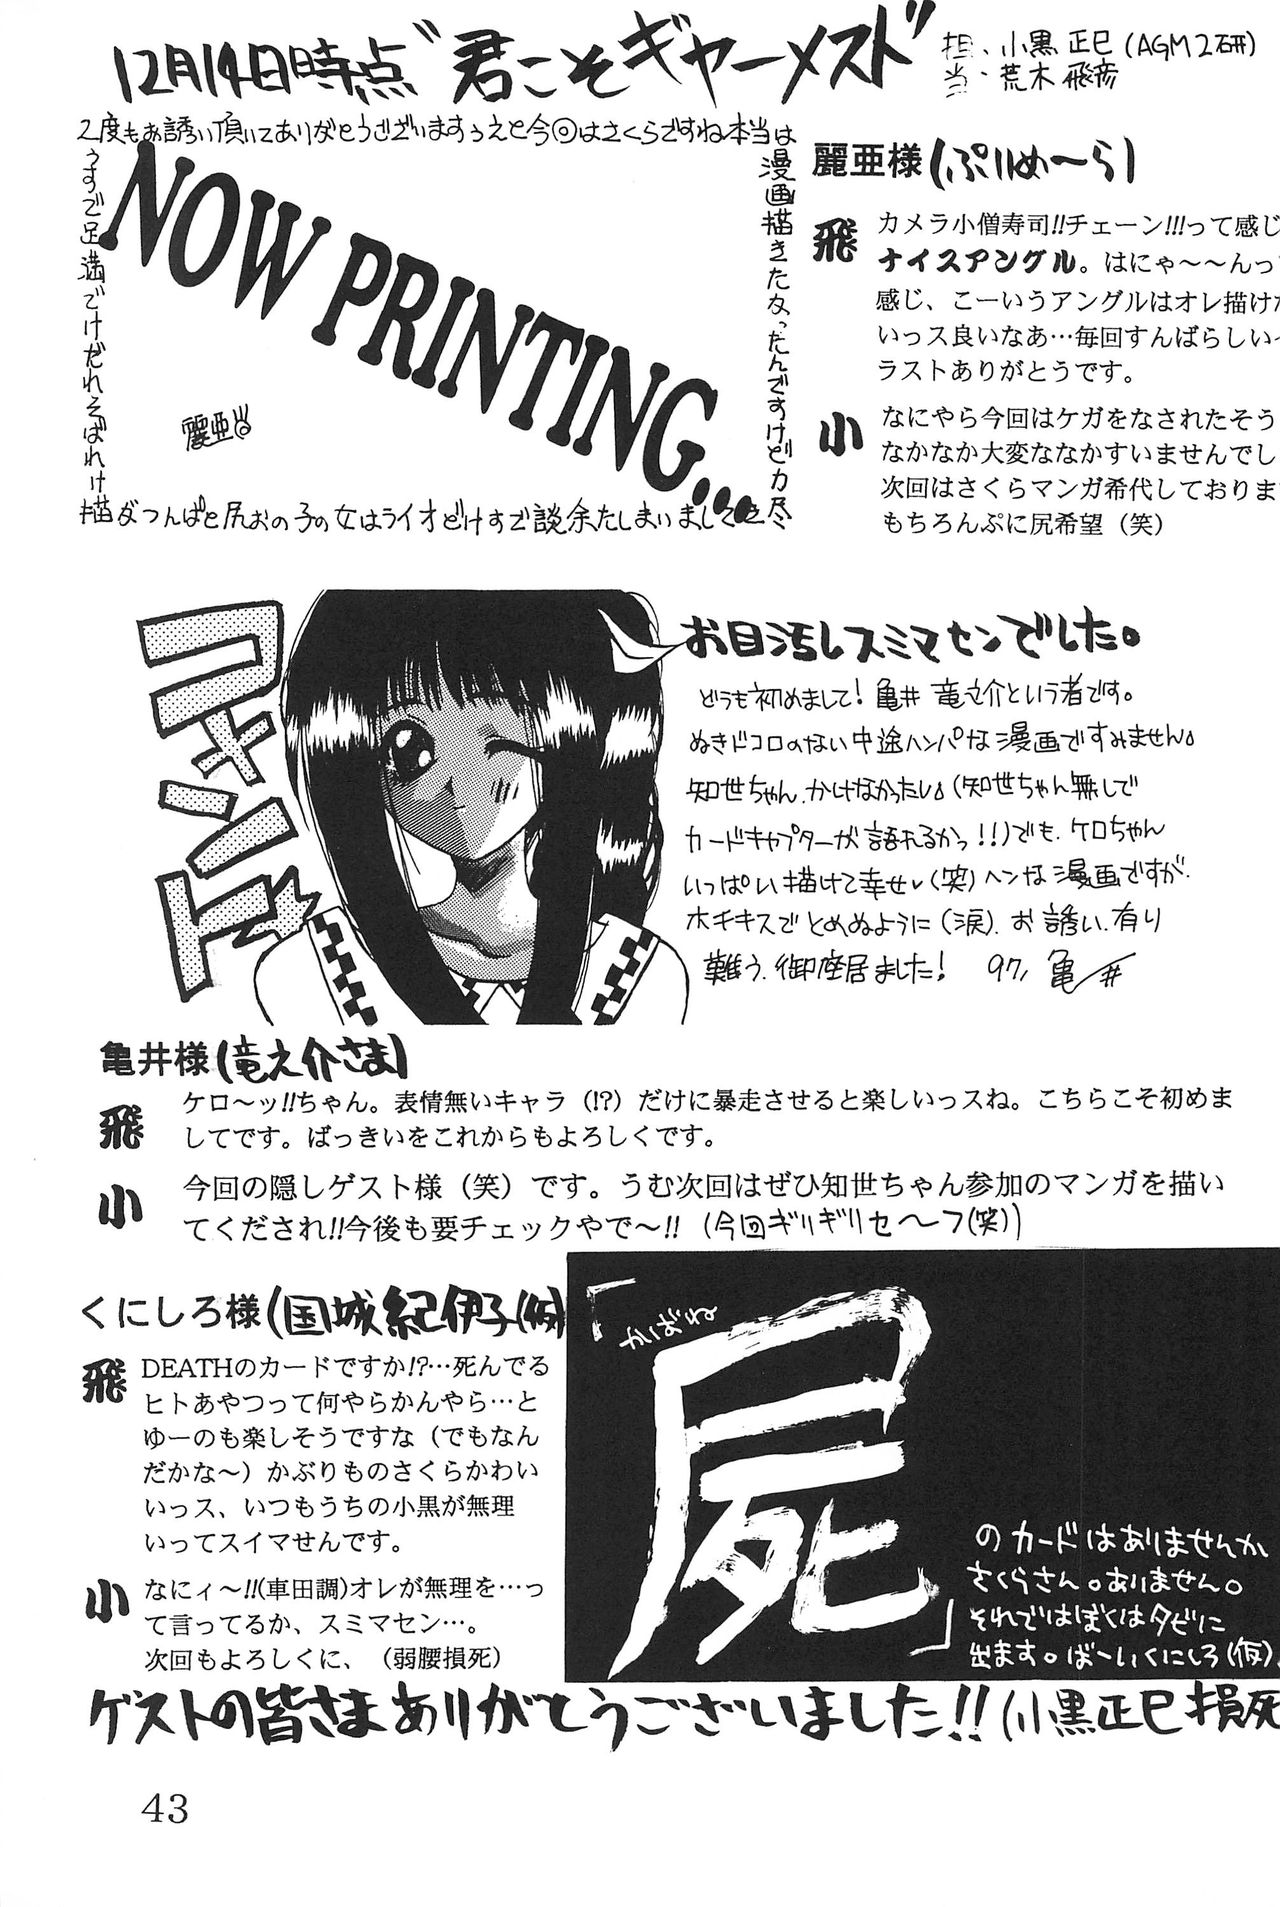 12月14日時点"君こそギャーメスト"
担当: 小黒 正巳(AGM2研)
荒木 飛彦
2度もお誘い頂いてありがとうございますぅえと今回はさくらですね本当は
漫画描きたなったんですけど力尽
NOW PRINTING...
麗亜
麗亜様(ぷりめ〜ら)
飛
カメラ小僧寿司!!チェーン!!!って感じ
ナイスアングル。はにゃ〜〜んっ
感じ、こーいうアングルはオレ描けな
いっス良いなあ…毎回すんばらしい
ラストありがとうです。
小
なにやら今回はケガをなされたそう
なかなか大変ななかすいませんでし
次回はさくらマンガ希代しておりま
もちろんぷに尻希望（笑）
コメント
お目汚しスミマセンでした。
どうも初めまして!亀井 竜之介という者です。
ぬきドコロのない中途ハンパな漫画ですみません。
知世ちゃん、かけなかったし。(知世ちゃん無しで
カードキャプターが語れるかっ!!)でも、ケロちゃん
いっぱい描けて幸せ♥(笑)ヘンな漫画ですが、
ホチキスでとめぬように(涙)、お誘い、有り
難う、御座居ました! 97, 亀井
亀井様(竜之介さま)
飛
ケロ〜ッ!!ちゃん。表情無いキャラ（!?）だけに暴走させると楽しいっスね。こちらこそ初めま
してです。ばっきいをこれからもよろしくです。
小
今回の隠しゲスト様（笑）です。うむ次回はぜひ知世ちゃん参加のマンガを描い
てくだされ!!今後も要チェックやで〜!! (今回ギリギリセ〜フ(笑))
くにしろ様(国城紀伊子(仮)
飛
DEATHのカードですか!?…死んでる
ヒトあやつって何やらかんやら…と
ゆーのも楽しそうですな（でもなん
だかな〜）かぶりものさくらかわい
いっス、いつもうちの小黒が無理
いってスイマせんです。
小
なにィ〜!!(車田調)オレが無理を…っ
て言ってるか、スミマセン…。
次回もよろしくに、（弱腰損死）
「屍」
かばね
のカードはありませんか
さくらさん。ありません。
それではぼくはタビに
出ます。ばーいくにしろ(仮)。
ゲストの皆さまありがとうございました!!(小黒正巳損死
43